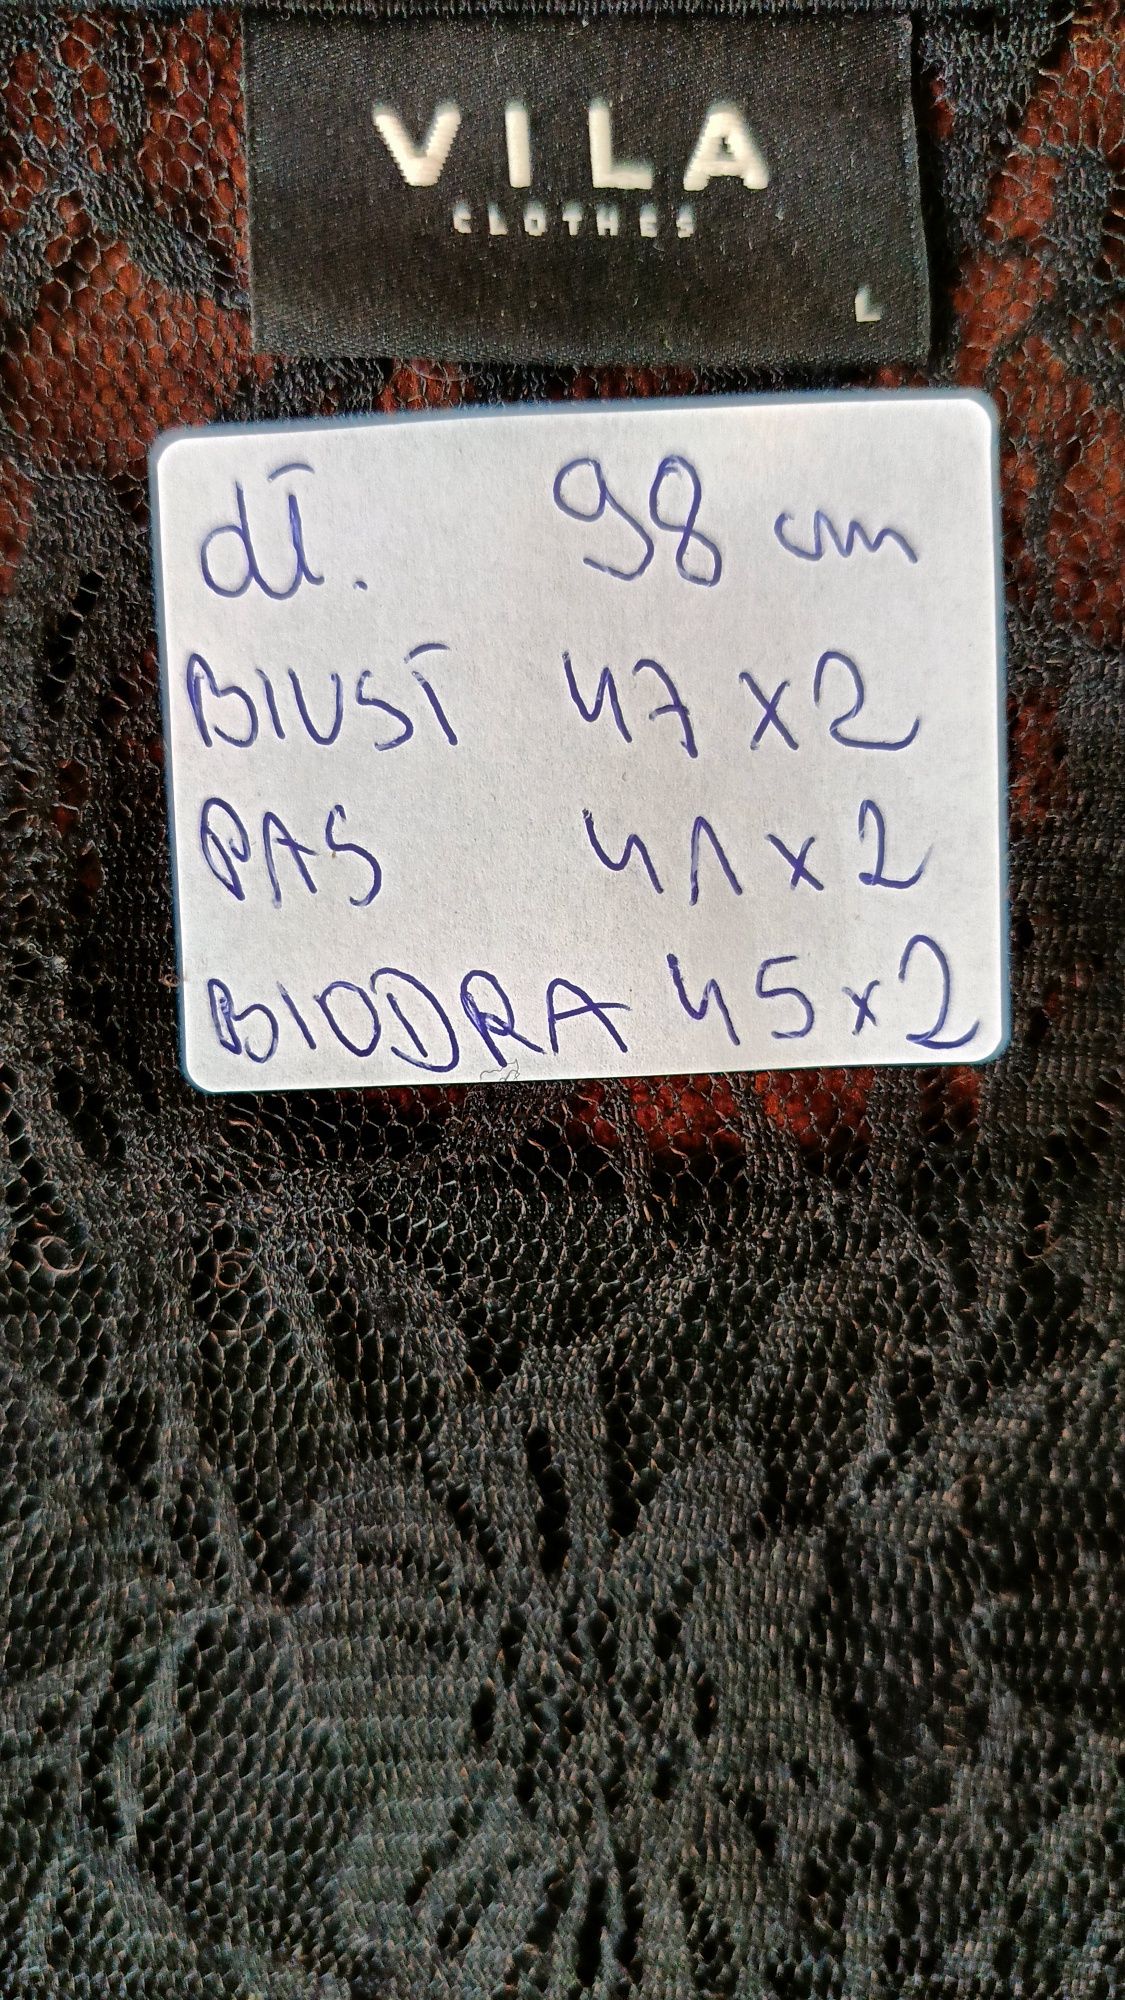 VILA
CLOTHES
L
dł. 98 cm
BIUST 47 x 2
PAS 41 x 2
BIODRA 45 x 2